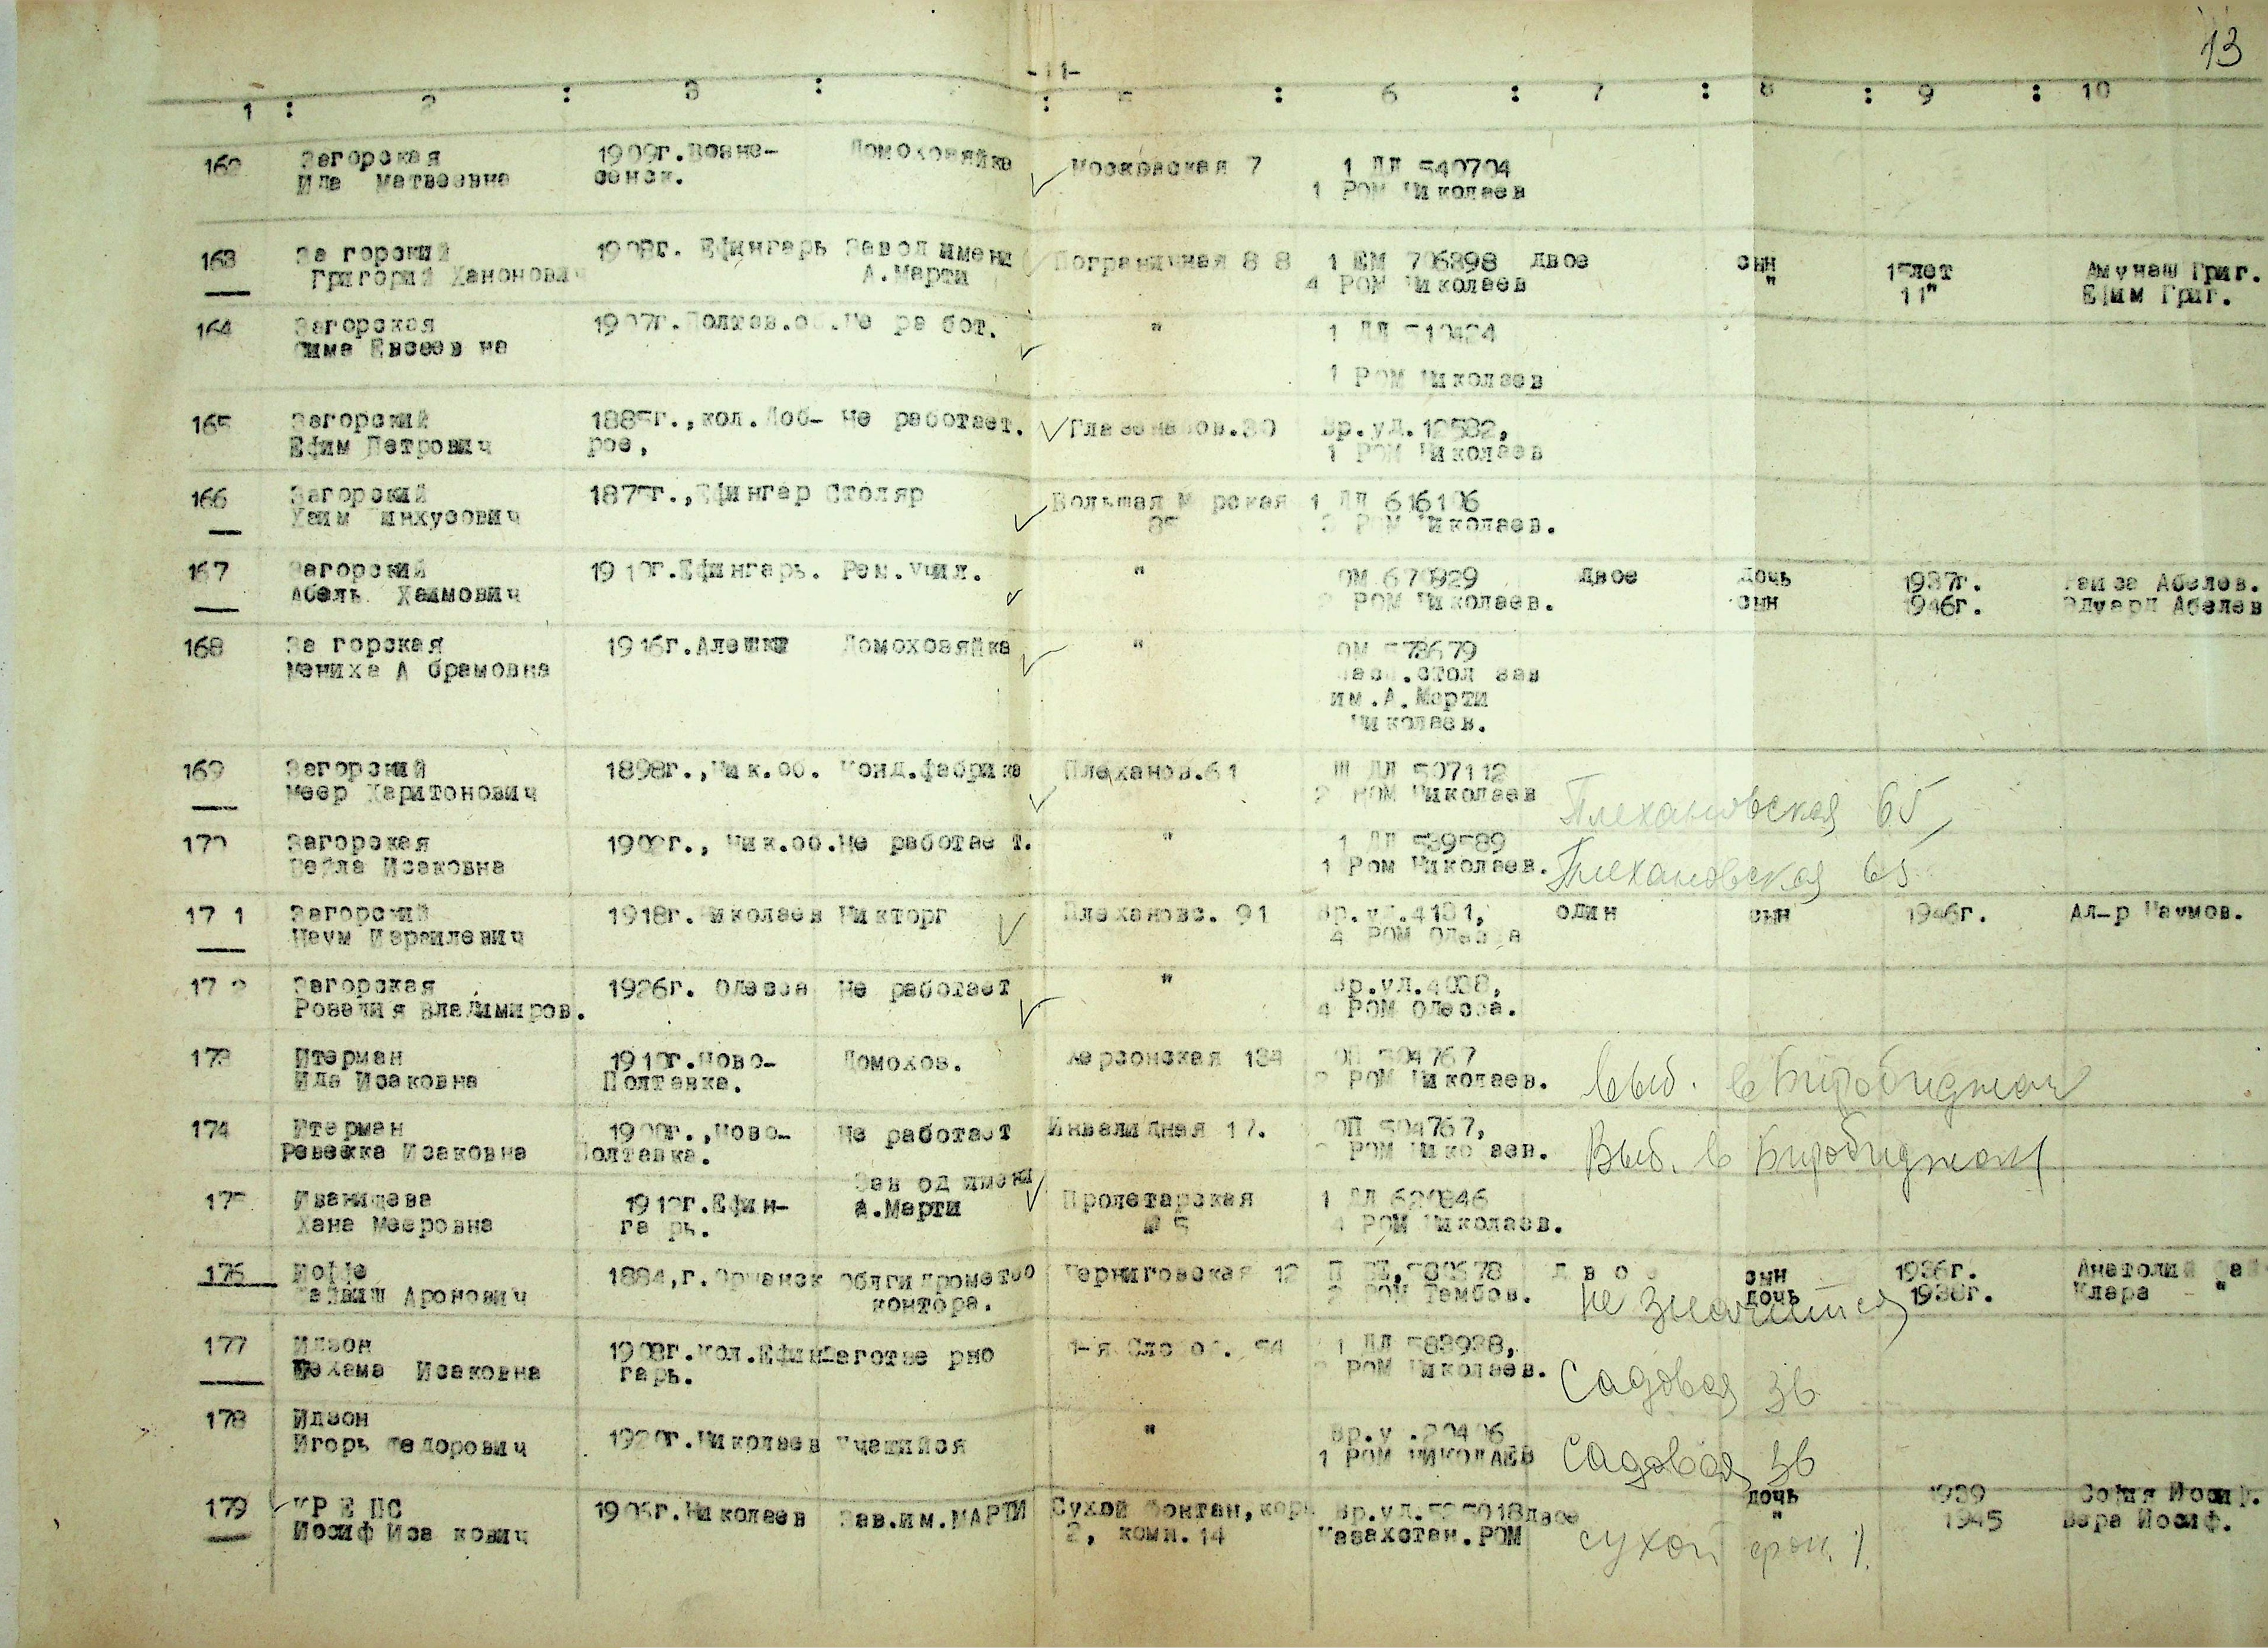 13
-11-
1 : 2 : 3 : : 5 : 6 : 7 : 8 : 9 : 10
162 Загорская 1909г.Возне- Домохозяйка Московская 7 1 ДЛ 540704
Ида Матвеевна сенск. 1 РОМ Николаев
163 За горский 1908г. Ефингарь Завод имени Пограничная 8 8 1 ЕМ 706898 двое сын 15лет Амунаш Григ.
Григорий Ханонович А.Марти 4 РОМ Николаев " 11" Ефим Григ.
164 Загорская 1907г.Полтав.об.Не ра бот. " 1 ДЛ 510424
Сима Евсеев на 1 РОМ Николаев
165 Загорский 1885г.,кол.Доб- Не работает. Глазенапов.30 Вр.уд.12582,
Ефим Петрович рое, 1 РОМ Николаев
166 Загорский 1875г.,Ефингар Столяр Большая М рская 1 ДЛ 616106
Хаим Пинхусович 85 3 РОМ Николаев.
167 Загорский 1910г.Ефингарь. Рем.Учил. " ОМ 670929 двое дочь 1937г. Раиса Абелев.
Абель Хаимович 2 РОМ Николаев. сын 1946г. Эдуард Абелев
168 За горская 1916г.Алешки Домохозяйка " ОМ 578679
Мениха А брамовна стол зав
им.А.Марти
Николаев.
169 Загорский 1898г.,Ник.об. Конд.фабрика Плеханов.61 Ш ДЛ 507112
Меер Харитонович 2 РОМ Николаев Плехановская 65
170 Загорская Ник.об.Не работае т. " 1 ДЛ 539589
Бейла Исаковна 1 Ром Николаев. Плехановская 65
17 1 Загорский 1918г.Николаев Никторг Плеханово. 91 Вр.уд.4101, один сын 1946г. Ал-р Наумов.
Наум Израилевич 4 РОМ Одесса
17 2 Загорская 1926г. Одесса Не работает " Вр.уд.4038,
Розалия Владимиров. 4 РОМ Одесса.
173 Итерман 1910г.Ново- Домохоз. Херсонская 134 ОП 504767
Ида Исаковна Полтавка. 2 РОМ Николаев. выб. в Биробиджан
174 Итерман 1900г.,Ново- Не работает Инвалидная 17. ОП 504767,
Ревекка Исаковна Полтавка. РОМ Нико аев. Выб. в Биробиджан
Зав од имени
175 Иванищева Ефин- А.Марти Пролетарская 1 ДЛ 620846
Хана Мееровна га рь. № 5 4 РОМ Николаев.
176 Иоффе 1884,г.Оршанск Облгидрометео Черниговская 12 д в о е сын 1936г. Анатолий
Аронович контора. 2 РОМ Тамбов. дочь 1938г. Клара "
Не значится
177 Идзон 1908г.Кол.Ефин- Заготзе рно 1-я Слобод. 54 1 ДЛ 583938,
Нехама Исаковна гарь. РОМ Николаев. Садовая 36
178 Идзон 1920г.Николаев Учащийся " Вр.у .20406
Игорь Федорович 1 РОМ НИКОЛАЕВ Садовая 36
179 КР Е ПС 1905г.Николаев Зав.им.МАРТИ Сухой Фонтан,корп Вр.уд.525018двое дочь 1939 София Иосиф.
Иосиф Иса кович 2, комн.14 Казахстан.РОМ " 1945 Вера Иосиф.
Сухой фон. 1.